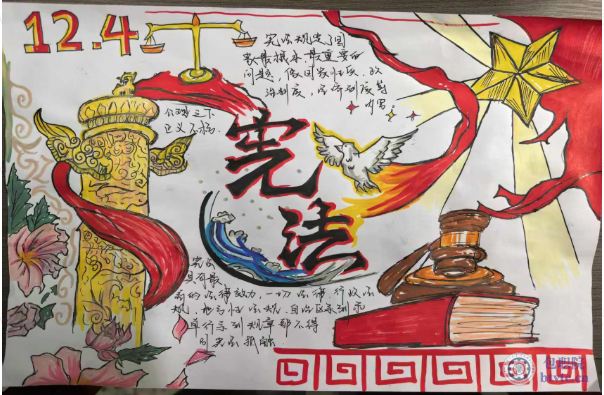 12.4
宪法规定了国
家最根本、最重要的
问题，如国家性质、政
治制度、经济制度等
内容。
公理之下
正义不朽.
宪法
宪法
具有最
高的法律效力，一切法律、行政法
规、地方性法规、自治区条例和
单行条例、规章都不得
同宪法抵触.
包职院